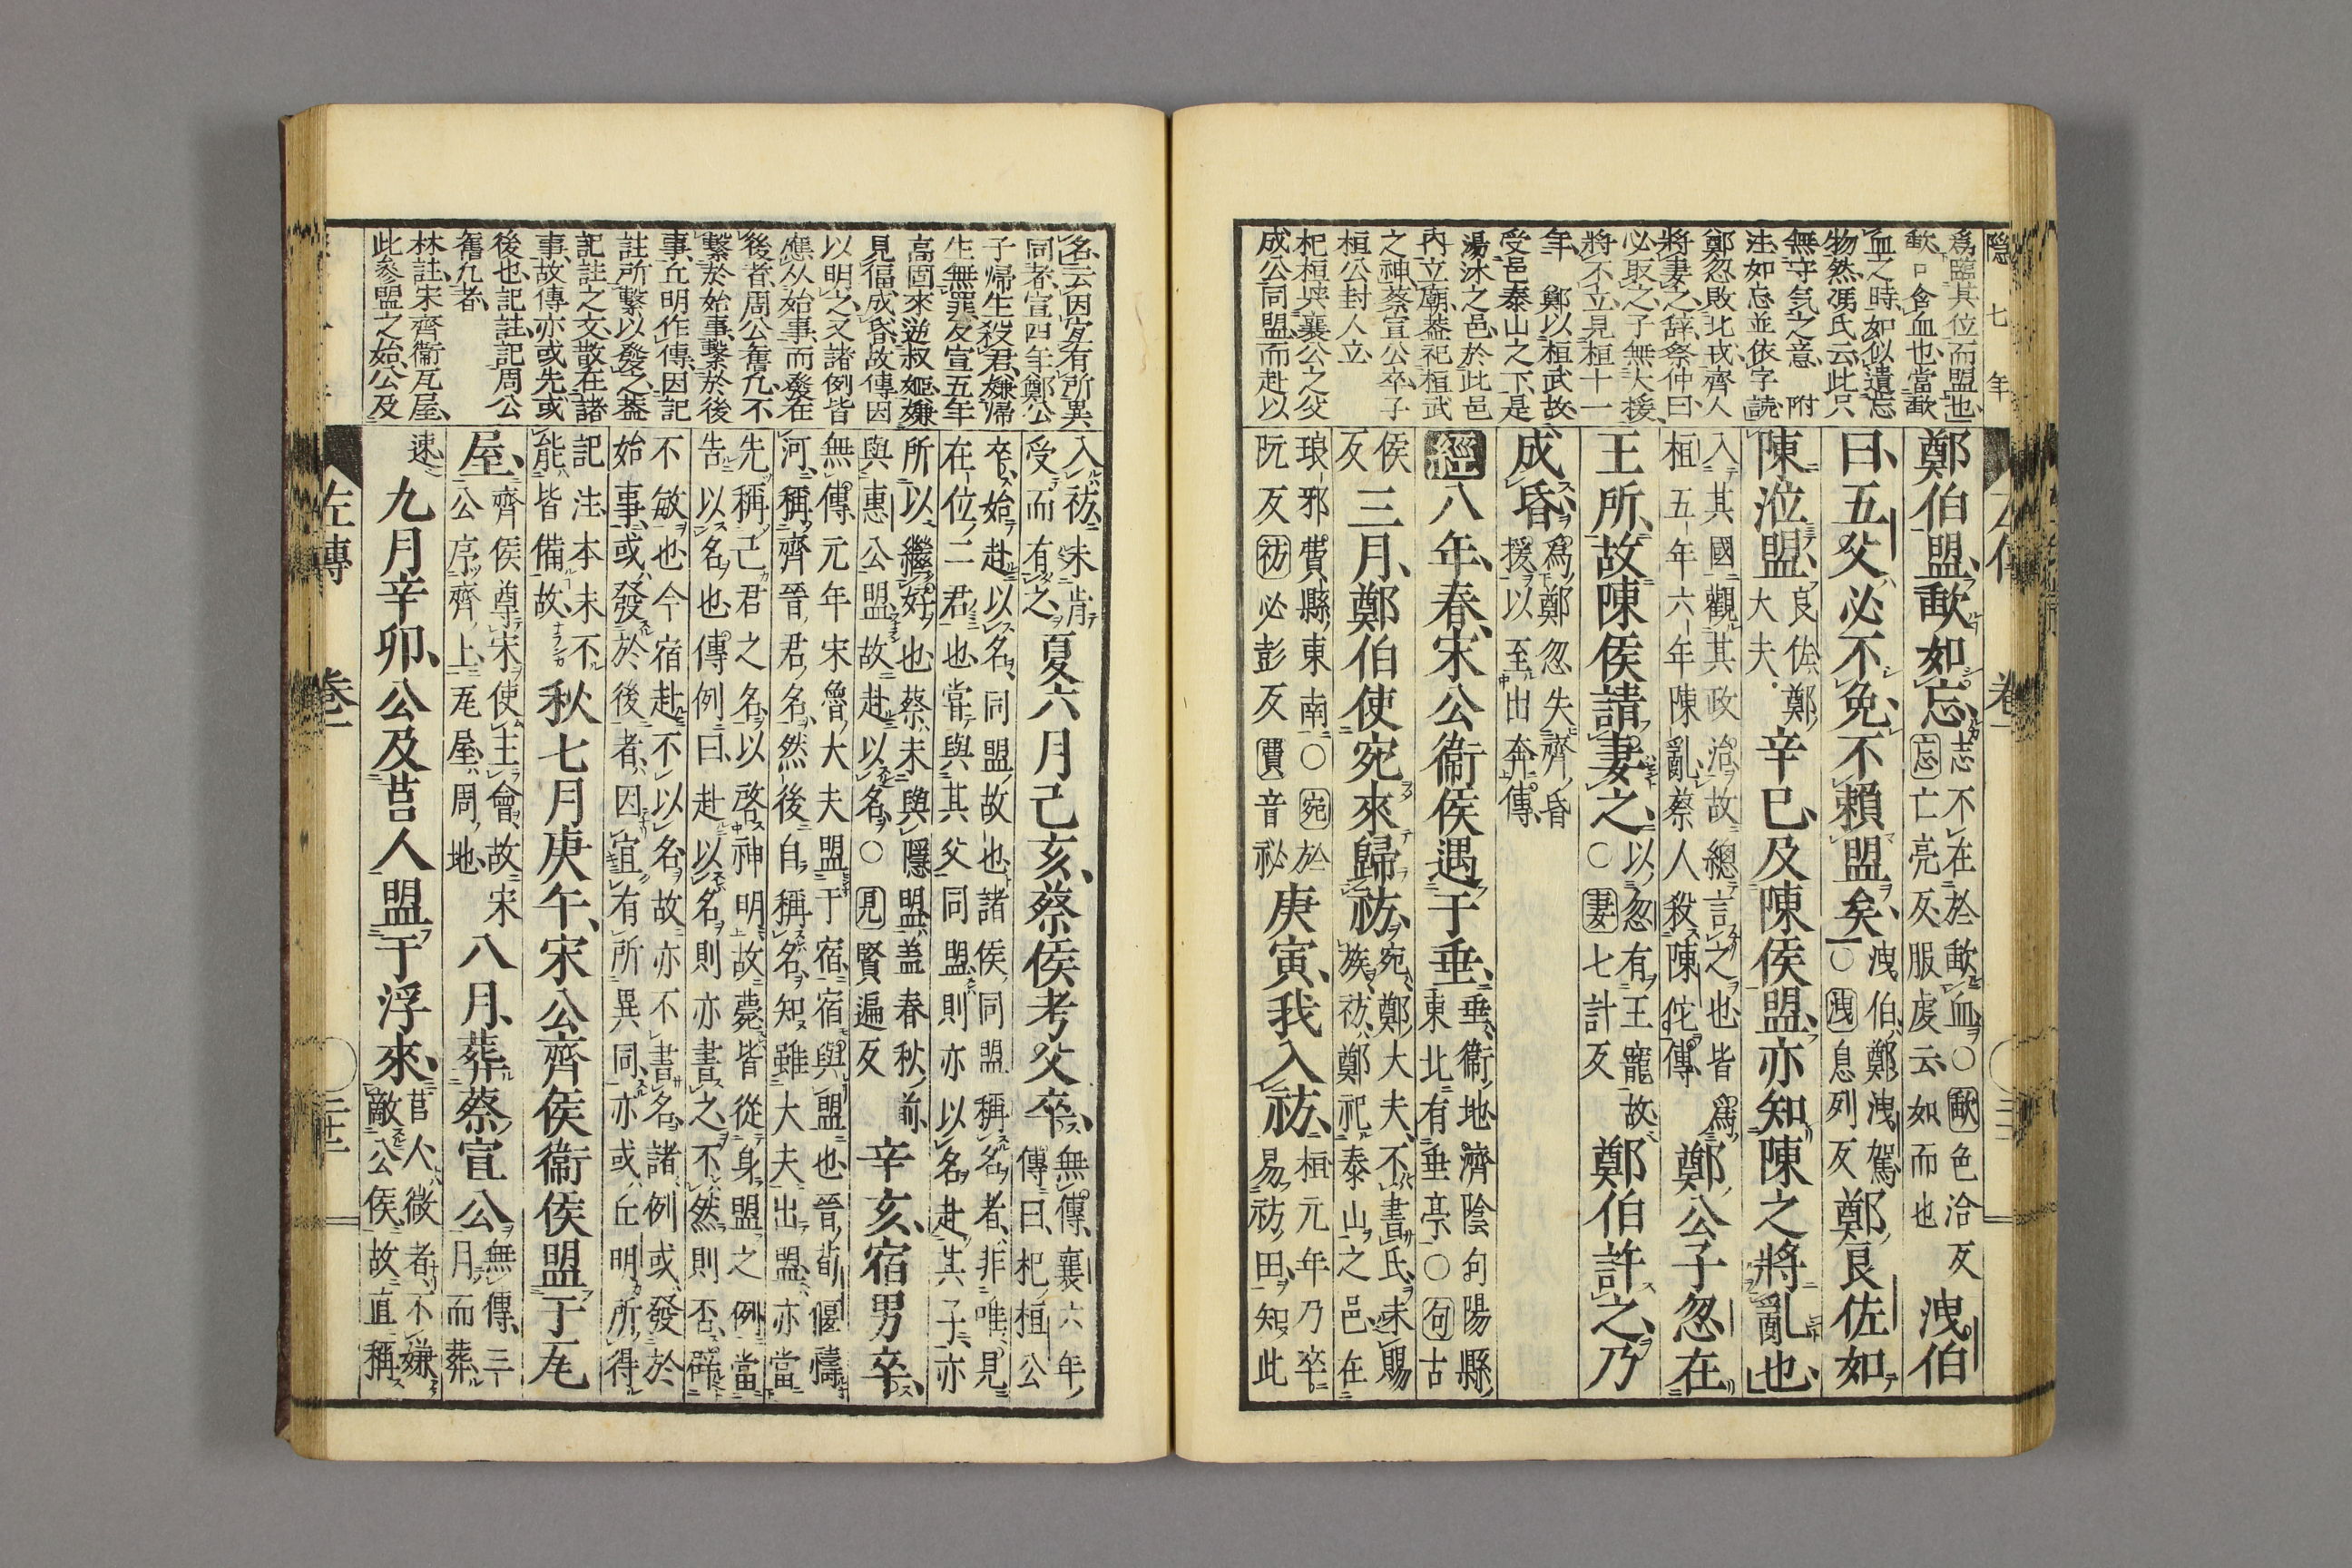 隱 七 年
爲臨其位而盟也
歃口含血也當歃
血之時如似遺忘
物然馮氏云此只
無守気之意 附
注如忘並依字読
鄭忽敗北戎齊人
將妻之辞祭仲曰
必取之子無大援
將不立見桓十一
年 鄭以桓武故
受邑泰山之下是
湯沐之邑於此邑
內立廟葢祀桓武
之神蔡宣公卒子
桓公封人立
杞桓 襄公之父
成公同盟而赴以
卷一
鄭伯盟歃如忘志不在於歃血○歃色洽反忘亡亮反服虔云如而也洩伯
曰五父必不免不賴盟矣洩伯鄭洩駕○洩息列反鄭良佐如
陳涖盟良佐鄭大夫辛巳及陳侯盟亦知陳之將亂也
入其國觀其政治故總言之也皆爲桓五年六年陳亂蔡人殺陳佗傳鄭公子忽在
王所故陳侯請妻之以忽有王寵故○妻七計反鄭伯許之乃
成昏爲鄭忽失齊昏援以至出奔傳
經八年春宋公衞侯遇于垂垂衞地濟陰句陽縣東北有垂亭○句古
侯反三月鄭伯使宛來歸祊宛鄭大夫不書氏未賜族祊鄭祀泰山之邑在
琅邪費縣東南○宛於阮反祊必彭反費音祕庚寅我入祊桓元年乃卒易祊田知此
名云因宐有所異
同者宣四年鄭公
子歸生殺君嫌歸
生無罪及宣五年
高固來逆叔姬嫌
見福成昏故傳因
以明之又諸例皆
應从始事而發在
後者周公舊凢不
繫於始事繫於後
事丘明作傳因記
註所繫以發之葢
記註之文散在諸
事故傳亦或先或
後也記註記周公
舊凢者
林註宋齊衞瓦屋
此參盟之始公及
入祊未肯受而有之夏六月己亥蔡侯考父卒無傳襄六年傳曰杞桓公
卒始赴以名同盟故也諸侯同盟稱名者非唯見在位二君也嘗與其父同盟則亦以名赴其子亦
所以繼好也蔡未與隱盟葢春秋前與惠公盟故赴以名○見賢遍反辛亥宿男卒
無傳元年宋魯大夫盟于宿宿與盟也晉荀偃禱河稱齊晉君名然後自稱名知雖大夫出盟亦當
先稱己君之名以啓神明故薨皆從身盟之例當告以名也傳例曰赴以名則亦書之不然則否辟
不敏也今宿赴不以名故亦不書名諸例或發於始事或發於後者因宜有所異同亦或丘明所得
記注本末不能皆備故秋七月庚午宋公齊侯衞侯盟于瓦
屋齊侯尊宋使主會故宋公序齊上瓦屋周地八月葬蔡宣公無傳三月而葬
速九月辛卯公及莒人盟于浮來莒人微者不嫌敵公侯故直稱
左傳 卷一